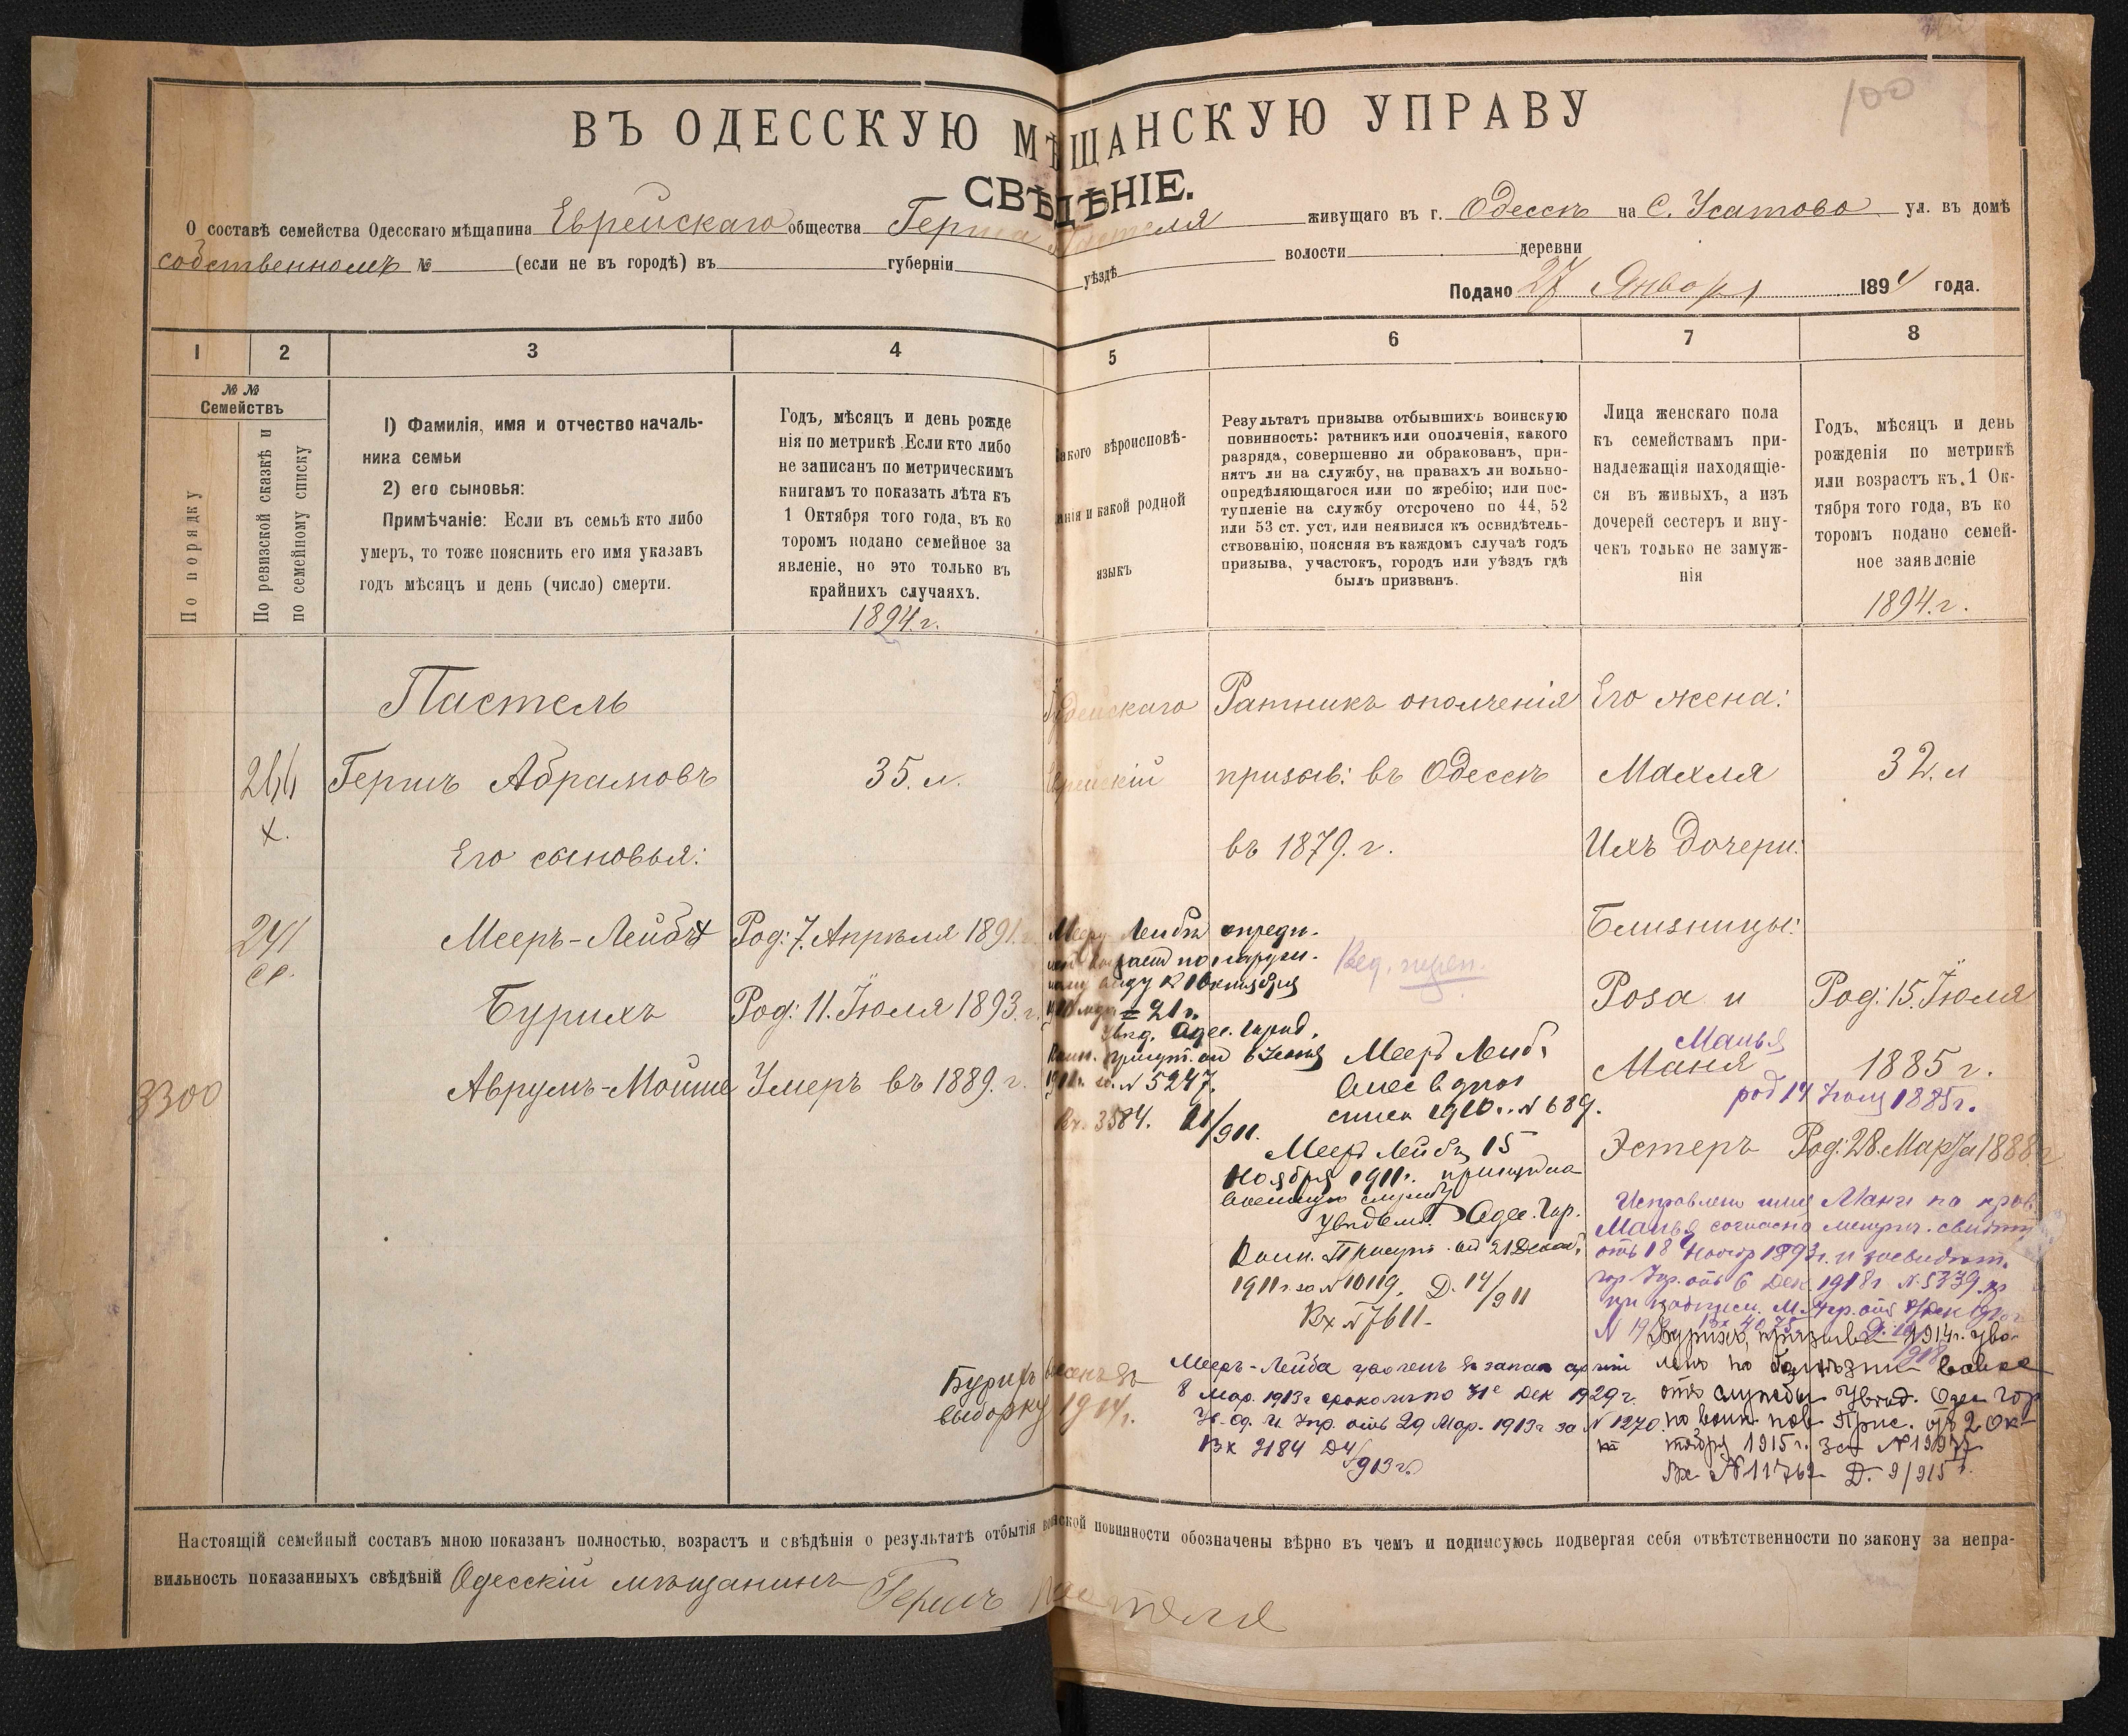 100
ВЪ ОДЕССКУЮ МѢЩАНСКУЮ УПРАВУ
СВѢДѢНІЕ.
О составѣ семейства Одесскаго мѣщанина Еврейскаго общества Герша Пастеля живущаго въ г. Одессѣ на С. Усатово ул. въ домѣ
собственномъ № (если не въ городѣ) въ губерніи уѣздѣ волости деревни
Подано 27 Января 1894 года.
1 2 3 4 5 6 7 8
№ №
Семействъ
По порядку
По ревизской сказкѣ и
по семейному списку
1) Фамилія, имя и отчество началь-
ника семьи
2) его сыновья:
Примѣчаніе: Если въ семьѣ кто либо
умеръ, то тоже пояснить его имя указавъ
годъ мѣсяцъ и день (число) смерти.
Годъ, мѣсяцъ и день рожде
нія по метрикѣ. Если кто либо
не записанъ по метрическимъ
книгамъ то показать лѣта къ
1 Октября того года, въ ко
торомъ подано семейное за
явленіе, но это только въ
крайнихъ случаяхъ.
1894 г.
акого вѣроисповѣ-
анія и какой родной
языкъ
Результатъ призыва отбывшихъ воинскую
повинность: ратникъ или ополченія, какого
разряда, совершенно ли обракованъ, при-
нятъ ли на службу, на правахъ ли вольно-
опредѣляющагося или по жребію; или пос-
тупленіе на службу отсрочено по 44, 52
или 53 ст. уст. или неявился къ освидѣтель-
ствованію, поясняя въ каждомъ случаѣ годъ
призыва, участокъ, городъ или уѣздъ гдѣ
былъ призванъ.
Лица женскаго пола
къ семействамъ при-
надлежащія находящіе-
ся въ живыхъ, а изъ
дочерей сестеръ и вну-
чекъ только не замуж-
нія
Годъ, мѣсяцъ и день
рожденія по метрикѣ
или возрастъ къ 1 Ок-
тября того года, въ ко
торомъ подано семей-
ное заявленіе
1894. г.
Пастель Іудейскаго Ратникъ ополченія Его жена:
Гершъ Абрамовъ 35. л. Еврейскій призыв: въ Одессѣ Махля 32. л
Его сыновья: въ 1879. г. Ихъ дочери:
241 Мееръ-Лейбъ Род: 7. Апрѣля 1891. г. Близницы:
Бурихъ Род: 11. Іюля 1893. г. Роза и Род: 15. Іюля
Манья
Маня 1885 г.
род 14 Іюля 1885 г.
3300 Аврумъ-Мойше Умеръ въ 1889. г.
Эстеръ Род: 28. Марта 1888 г
Мееръ Лейбѣ опреди-
по наруж.
виду к 1 Октября
= 21 г.
Увѣд. Одес. Город.
Воин. Присут. от 6 Іюня
№ 5247.
Вх. 3584.
Мееръ Лейб.
внес в
списк 1910 г. № 689.
Мееръ Лейбъ 15
Ноября 1911 г. принят на
военную службу
Увѣдом. Одес. Гор.
Воин. Присут. от 21 Декаб.
1911 г. за № 10119. Д. 14/911
Вх № 7611.
Исправлено имя Маня на
Манья согласно метрич. свидѣт
отъ 18 Нояб 1893 г. и
отъ 6 Дек. 1918 г. № 5339
Бурихъ внесенъ въ
выборку 1914 г.
Мееръ-Лейба уволенъ въ запас арміи
8 Мар. 1913 г срокомъ по 31е Дек 1929 г.
отъ 29 Мар. 1913 г за № 1270.
Вх 2184 Д 4/913 г.
Бурихъ, призыва 1914 г. уво-
ленъ по болѣзни вовсе
отъ службы Увѣд. Одес Гор
по воин. пов. Прис. отъ 2 Ок-
тября 1915 г. за № 19977
Вх № 11762 Д. 9/915 г.
Настоящій семейный составъ мною показанъ полностью, возрастъ и свѣдѣнія о результатѣ отбытія воинской повинности обозначены вѣрно въ чемъ и подписуюсь подвергая себя отвѣтственности по закону за непра-
вильность показанныхъ свѣдѣній Одесскій мѣщанинъ Гершъ Пастеля